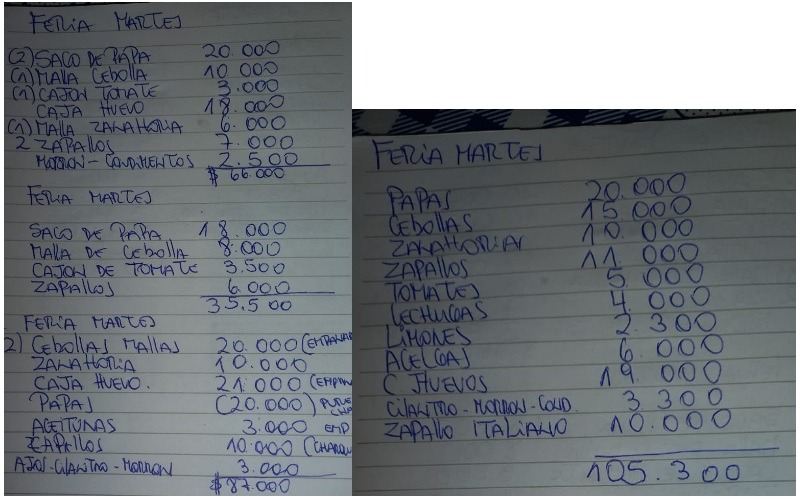 FERIA MARTES
(2) SACO DE PAPA 20.000
(1) MALLA CEBOLLA 10 000
(1) CAJON TOMATE 3.000
CAJA HUEVO 18.000
(1) MALLA ZANAHORIA 6.000
2 ZAPALLOS 7.000
MORRON - CONDIMENTOS 2.500
$ 66.000
FERIA MARTES
SACO DE PAPA 18.000
MALLA DE CEBOLLA 8.000
CAJON DE TOMATE 3.500
ZAPALLOS 6.000
35.500
FERIA MARTES
2) CEBOLLAS MALLAS 20.000 (EMPANA
ZANAHORIA 10.000
CAJA HUEVO. 21.000 (EMPAN
PAPAS (20.000) PURE
ACEITUNAS 3.000 EMP
ZAPALLOS 10.000 (CHARQU
AJOS-CILANTRO-MORRON 3.000
$ 87.000
FERIA MARTES
PAPAS 20.000
CEBOLLAS 15 000
ZANAHORIAS 10.000
ZAPALLOS 11.000
TOMATES 5 000
LECHUGAS 4 000
LIMONES 2.300
ACELGAS 6.000
C HUEVOS 19.000
CILANTRO-MORRON-COND. 3 300
ZAPALLO ITALIANO 10.000
105.300